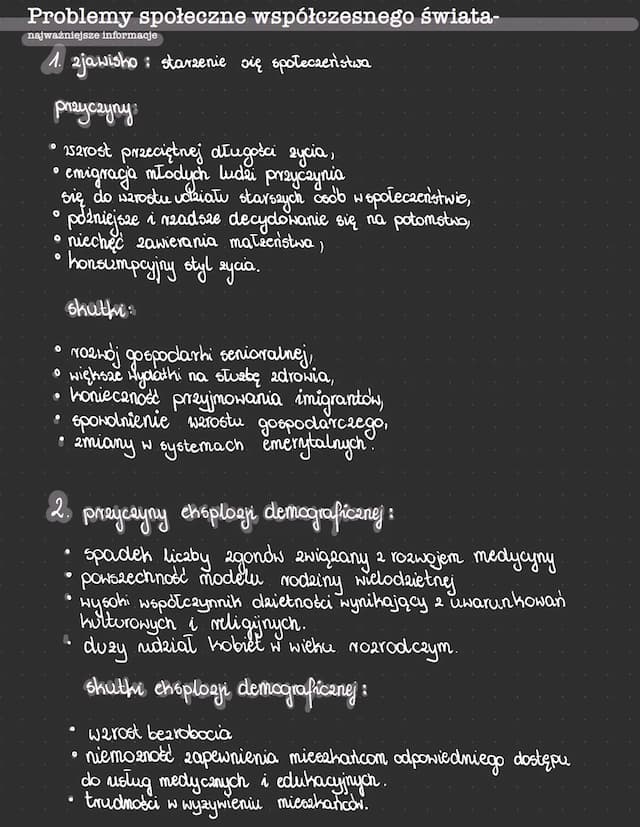 Problemy społeczne współczesnego świata-
najważniejsze informacje
1. zjawisko : starzenie się społeczeństwa
przyczyny:
• wzrost przeciętnej długości życia,
• emigracja młodych ludzi przyczynia
się do wzrostu udziału starszych osób w społeczeństwie,
• późniejsze i rzadsze decydowanie się na potomstwo,
• niechęć zawierania małżeństwa,
• konsumpcyjny styl życia.
skutki:
• rozwój gospodarki senioralnej,
• większe wydatki na służbę zdrowia,
• konieczność przyjmowania imigrantów,
• spowolnienie wzrostu gospodarczego,
• zmiany w systemach emerytalnych.
2. przyczyny eksplozji demograficznej:
• spadek liczby zgonów związany z rozwojem medycyny
• powszechność modelu rodziny wielodzietnej
• wysoki współczynnik dzietności wynikający z uwarunkowań
kulturowych i religijnych.
• duży udział kobiet w wieku rozrodczym.
skutki eksplozji demograficznej:
• wzrost bezrobocia
• niemożność zapewnienia mieszkańcom odpowiedniego dostępu
do usług medycznych i edukacyjnych.
• trudności w wyżywieniu mieszkańców.